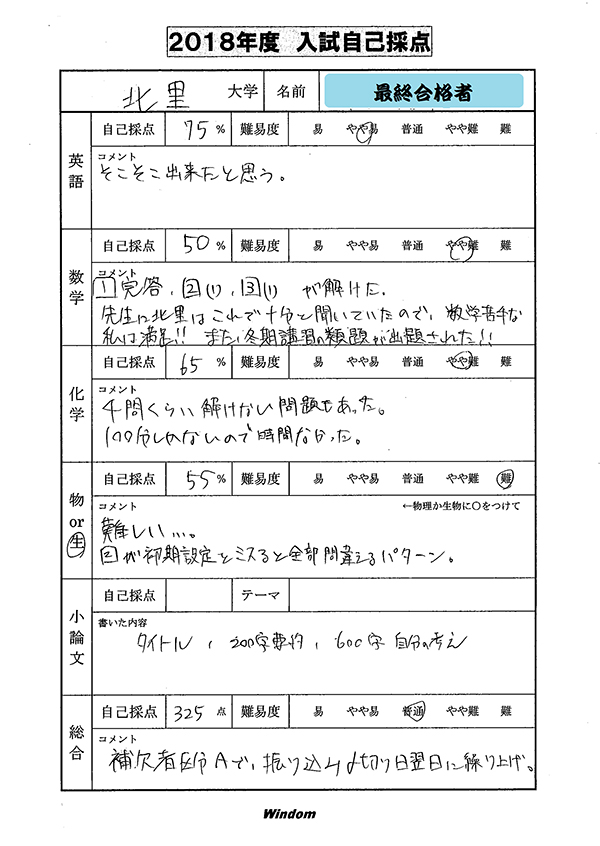 2018年度 入試自己採点
北里 大学 名前 最終合格者
英語 自己採点 75 % 難易度 易 やや易 普通 やや難 難
コメント
そこそこ出来たと思う。
数学 自己採点 50 % 難易度 易 やや易 普通 やや難 難
コメント
1完答、2(1)、3(1) が解けた。
先生に北里はこれで十分と聞いていたので、数学苦手な
私は満足!! また、冬期講習の類題が出題された!!
化学 自己採点 65 % 難易度 易 やや易 普通 やや難 難
コメント
4問くらい解けない問題もあった。
100分しかないので時間なかった。
物or生 自己採点 55 % 難易度 易 やや易 普通 やや難 難
コメント ←物理か生物に〇をつけて
難しい…。
2が初期設定をミスると全部間違えるパターン。
小論文 自己採点 テーマ
書いた内容
タイトル、200字要約、600字 自分の考え
総合 自己採点 325 点 難易度 易 やや易 普通 やや難 難
コメント
補欠者区分Aで、振り込み〆切り日翌日に繰り上げ。
Windom